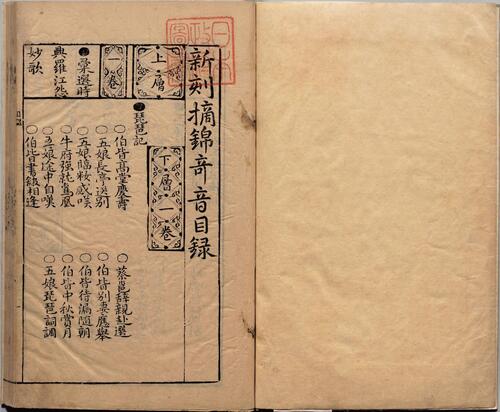 日本政府圖書
新刻摘錦奇音目録
上層
一卷
彙選時
興羅江怨
妙歌
下層一卷
琵琶記
○伯皆高堂慶壽 ○蔡邕辭親赴選
○五娘長亭送別 ○伯皆別妻應舉
○五娘臨粧感嘆 ○伯皆待漏隨朝
○牛府強就鸞凰 ○伯皆中秋賞月
○五娘途中自嘆 ○五娘琵琶詞調
○伯皆書館相逢